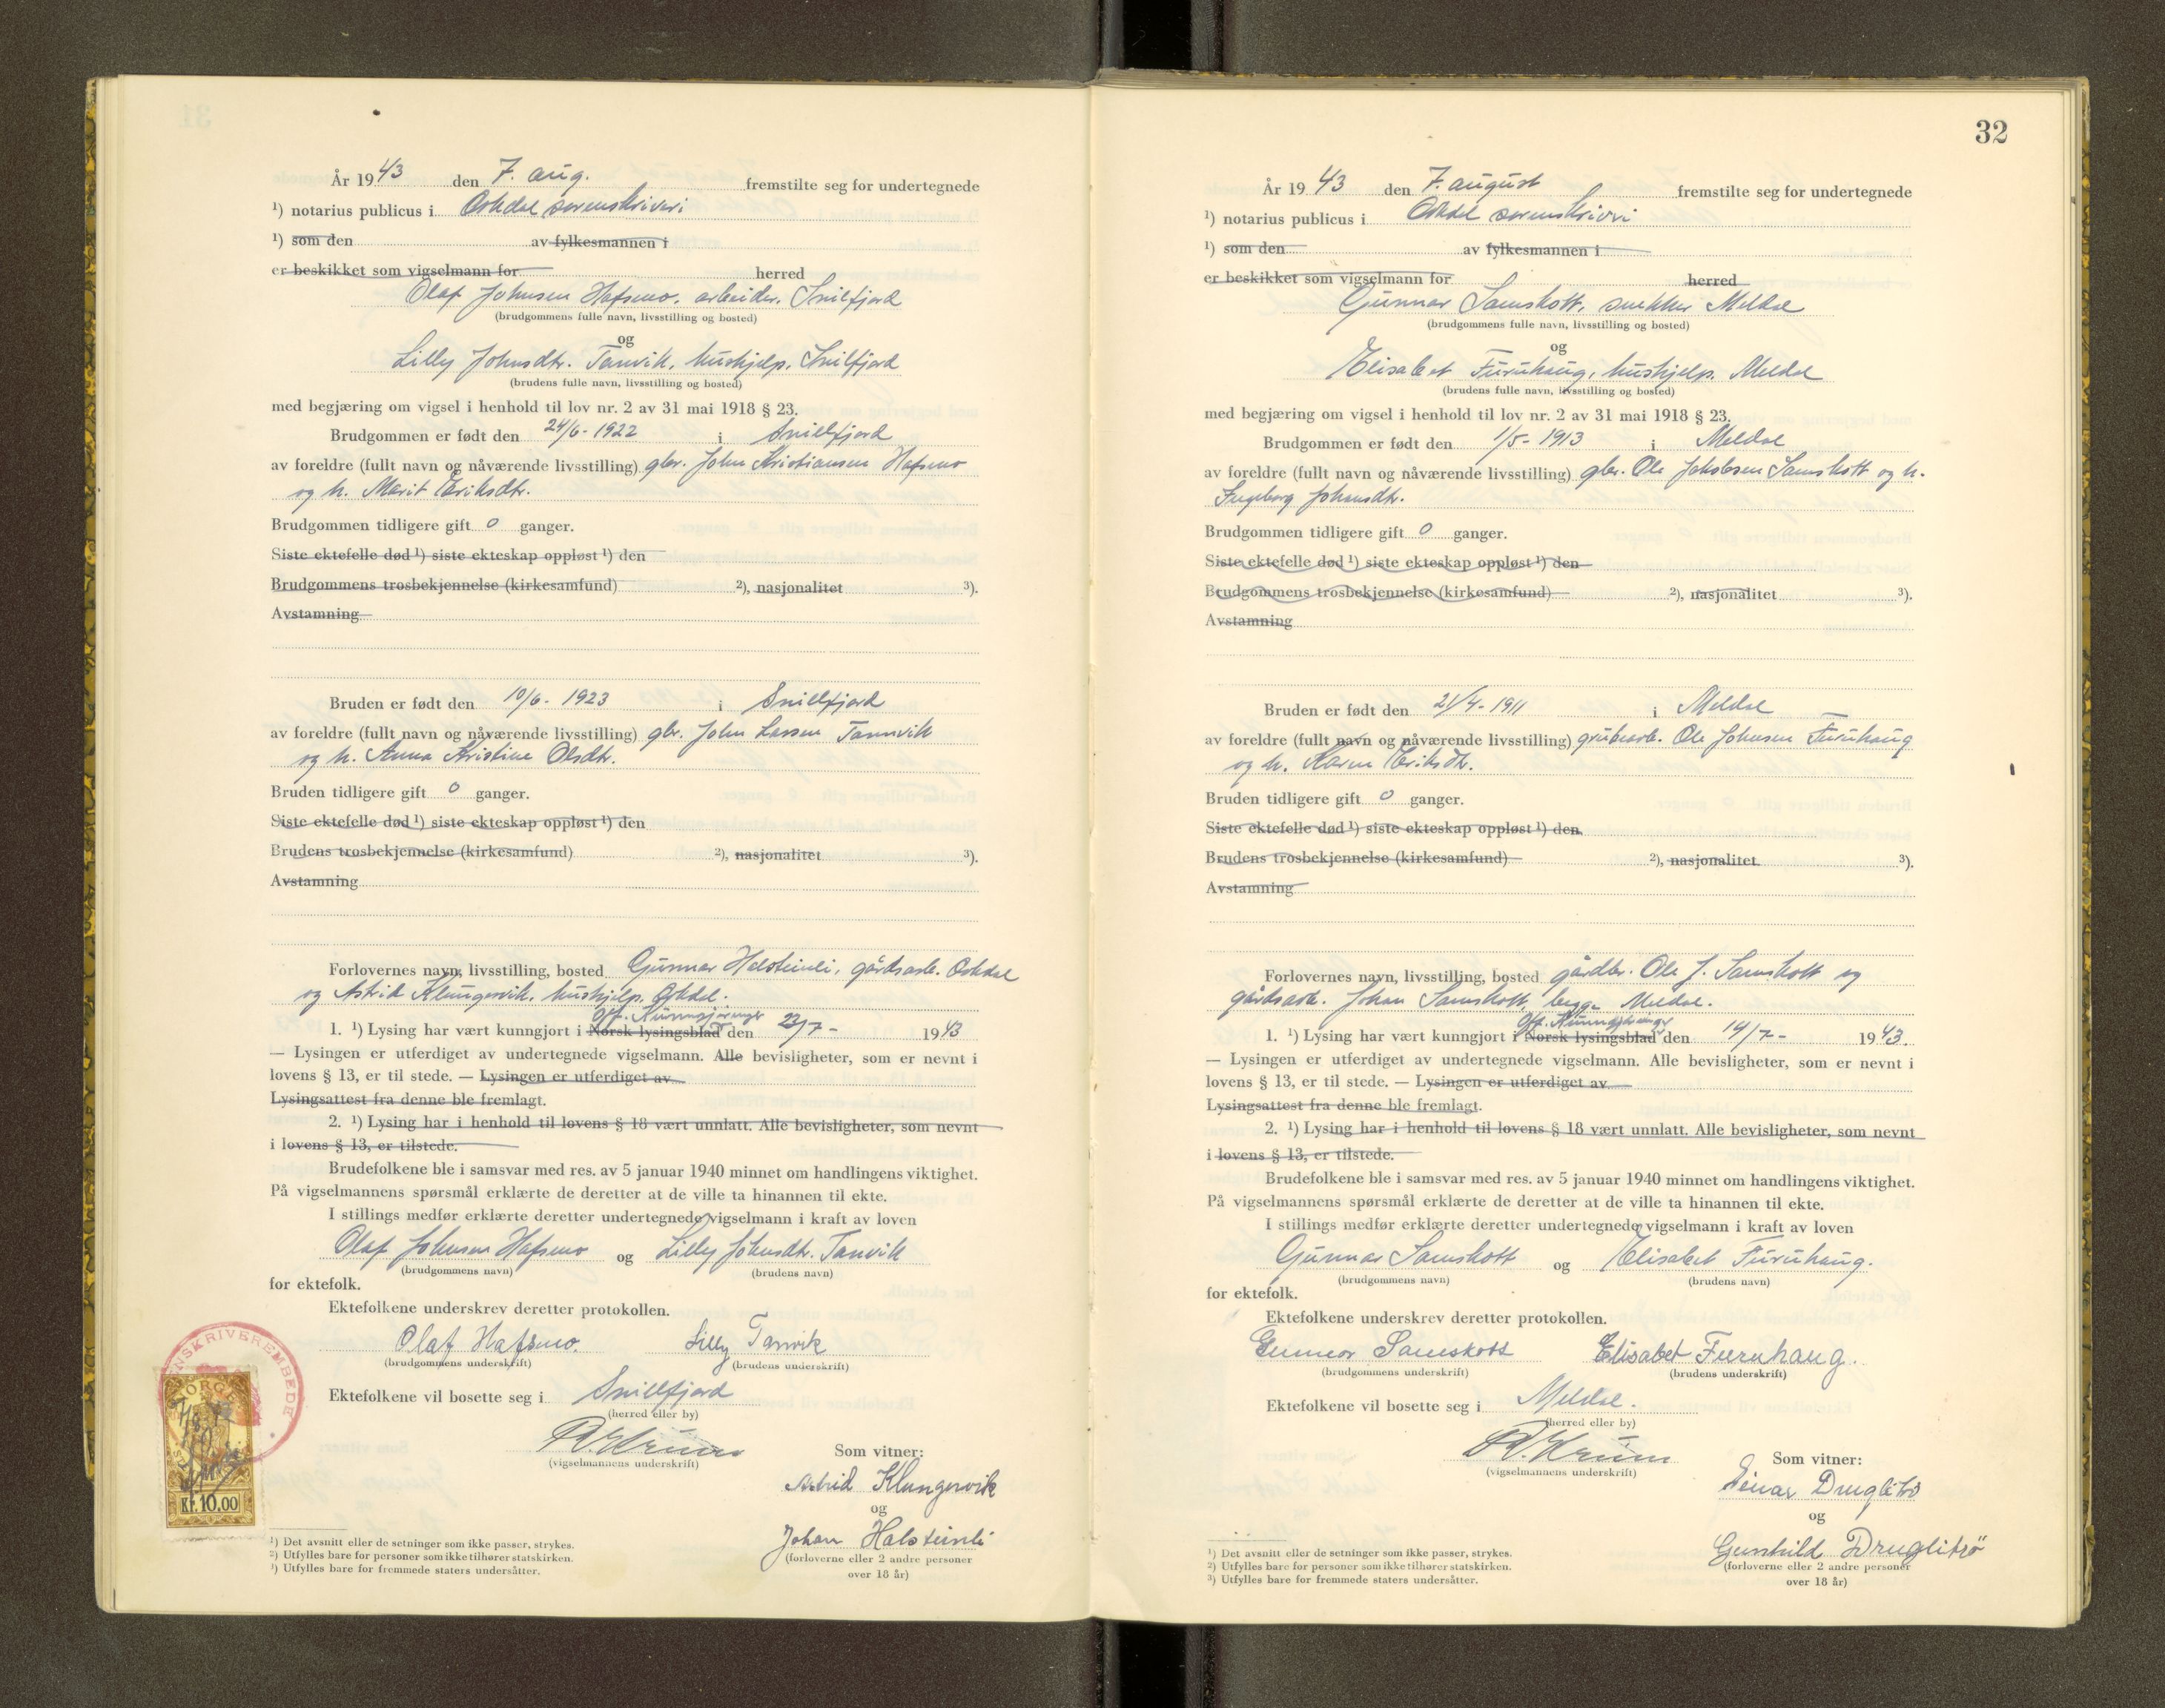 År 1943 den 7. aug. fremstilte seg for undertegnede
¹) notarius publicus i Orkdal sorenskriveri
¹) som den av fylkesmannen i
er beskikket som vigselmann for herred
Olaf Johnsen Hafsmo, arbeider, Snilfjord
(brudgommens fulle navn, livsstilling og bosted)
og
Lilly Johnsdtr. Tanvik, hushjelp, Snilfjord
(brudens fulle navn, livsstilling og bosted)
med begjæring om vigsel i henhold til lov nr. 2 av 31 mai 1918 § 23.
Brudgommen er født den 24/6 - 1922 i Snillfjord
av foreldre (fullt navn og nåværende livsstilling) gbr. John Kristiansen Hafsmo
og h. Marit Eriksdtr.
Brudgommen tidligere gift 0 ganger.
Siste ektefelle død ¹) siste ekteskap oppløst ¹) den
Brudgommens trosbekjennelse (kirkesamfund) ²), nasjonalitet ³).
Avstamning
Bruden er født den 10/6 - 1923 i Snillfjord
av foreldre (fullt navn og nåværende livsstilling) gbr. John Larsen Tannvik
og h. Anna Kristine Olsdtr.
Bruden tidligere gift 0 ganger.
Siste ektefelle død ¹) siste ekteskap oppløst ¹) den
Brudens trosbekjennelse (kirkesamfund) ²), nasjonalitet ³).
Avstamning
Forlovernes navn, livsstilling, bosted Gunnar Halsteinli, gårdsarb. Orkdal
og Astrid Klungervik, hushjelp, Orkdal.
off. Kunngjøringer
1. ¹) Lysing har vært kunngjort i Norsk lysingsblad den 23/7 - 1943
— Lysingen er utferdiget av undertegnede vigselmann. Alle bevisligheter, som er nevnt i
lovens § 13, er til stede. — Lysingen er utferdiget av
Lysingsattest fra denne ble fremlagt.
2. ¹) Lysing har i henhold til lovens § 18 vært unnlatt. Alle bevisligheter, som nevnt
i lovens § 13, er tilstede.
Brudefolkene ble i samsvar med res. av 5 januar 1940 minnet om handlingens viktighet.
På vigselmannens spørsmål erklærte de deretter at de ville ta hinannen til ekte.
I stillings medfør erklærte deretter undertegnede vigselmann i kraft av loven
Olaf Johnsen Hafsmo og Lilly Johnsdtr. Tanvik
(brudgommens navn) (brudens navn)
for ektefolk.
Ektefolkene underskrev deretter protokollen.
Olaf Hafsmo. Lilly Tanvik
(brudgommens underskrift) (brudens underskrift)
Ektefolkene vil bosette seg i Snillfjord
(herred eller by)
(vigselmannens underskrift)
Som vitner:
Astrid Klungervik
og
Johan Halsteinli
(forloverne eller 2 andre personer
over 18 år)
NSKRIVEREMBEDE
NORGE
7/8 43
Kr. 10,00
¹) Det avsnitt eller de setninger som ikke passer, strykes.
²) Utfylles bare for personer som ikke tilhører statskirken.
³) Utfylles bare for fremmede staters undersåtter.
32
År 1943 den 7. august fremstilte seg for undertegnede
¹) notarius publicus i Orkdal sorenskriveri
¹) som den av fylkesmannen i
er beskikket som vigselmann for herred
Gunnar Samskott, snekker Meldal
(brudgommens fulle navn, livsstilling og bosted)
og
Elisabet Furuhaug, hushjelp, Meldal
(brudens fulle navn, livsstilling og bosted)
med begjæring om vigsel i henhold til lov nr. 2 av 31 mai 1918 § 23.
Brudgommen er født den 1/5 - 1913 i Meldal
av foreldre (fullt navn og nåværende livsstilling) gbr. Ole Jakobsen Samskott og h.
Ingeborg Johansdtr.
Brudgommen tidligere gift 0 ganger.
Siste ektefelle død ¹) siste ekteskap oppløst ¹) den
Brudgommens trosbekjennelse (kirkesamfund) ²), nasjonalitet ³).
Avstamning
Bruden er født den 21/4 - 1911 i Meldal
av foreldre (fullt navn og nåværende livsstilling) grubearb. Ole Johnsen Furuhaug
og h. Karen Eriksdtr.
Bruden tidligere gift 0 ganger.
Siste ektefelle død ¹) siste ekteskap oppløst ¹) den
Brudens trosbekjennelse (kirkesamfund) ²), nasjonalitet ³).
Avstamning
Forlovernes navn, livsstilling, bosted gårdbr. Ole J. Samskott og
gårdsarb. Johan Samskott, begge Meldal.
off. Kunngjøringer
1. ¹) Lysing har vært kunngjort i Norsk lysingsblad den 14/7 - 1943.
— Lysingen er utferdiget av undertegnede vigselmann. Alle bevisligheter, som er nevnt i
lovens § 13, er til stede. — Lysingen er utferdiget av
Lysingsattest fra denne ble fremlagt.
2. ¹) Lysing har i henhold til lovens § 18 vært unnlatt. Alle bevisligheter, som nevnt
i lovens § 13, er tilstede.
Brudefolkene ble i samsvar med res. av 5 januar 1940 minnet om handlingens viktighet.
På vigselmannens spørsmål erklærte de deretter at de ville ta hinannen til ekte.
I stillings medfør erklærte deretter undertegnede vigselmann i kraft av loven
Gunnar Samskott og Elisabet Furuhaug.
(brudgommens navn) (brudens navn)
for ektefolk.
Ektefolkene underskrev deretter protokollen.
Gunnar Samskott Elisabet Furuhaug.
(brudgommens underskrift) (brudens underskrift)
Ektefolkene vil bosette seg i Meldal.
(herred eller by)
(vigselmannens underskrift)
Som vitner:
Einar Druglitrø
og
Gunhild Druglitrö
(forloverne eller 2 andre personer
over 18 år)
¹) Det avsnitt eller de setninger som ikke passer, strykes.
²) Utfylles bare for personer som ikke tilhører statskirken.
³) Utfylles bare for fremmede staters undersåtter.